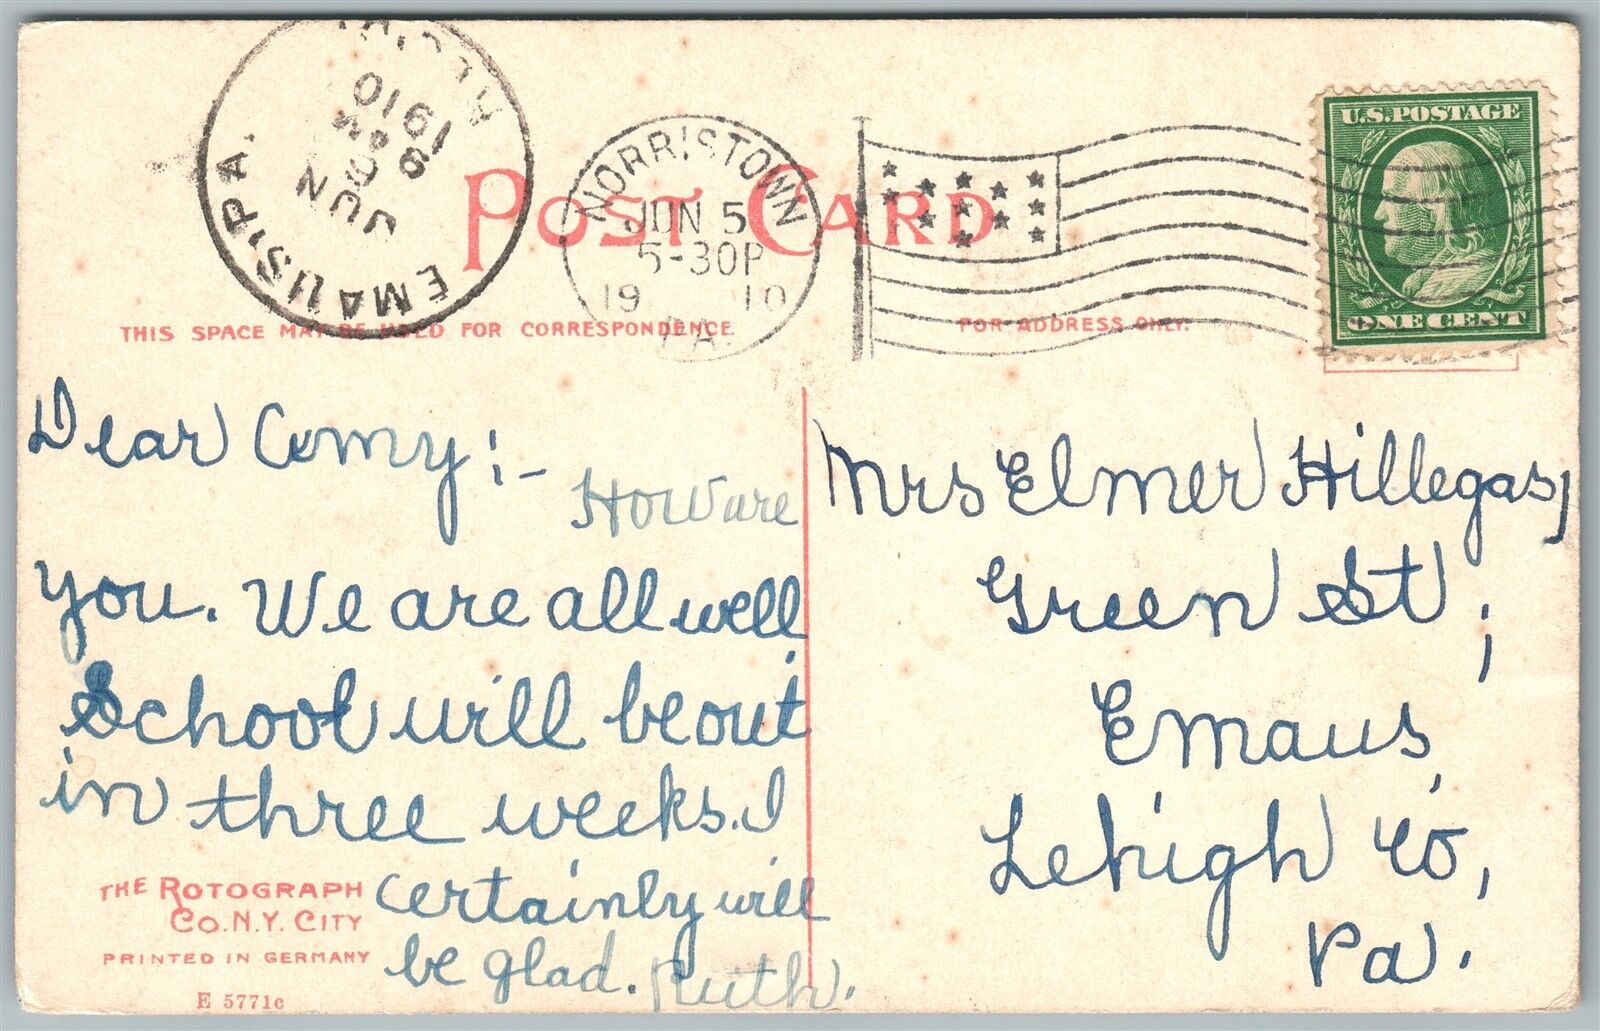 EMAUS, PA.
JUN
6
1910
NORRISTOWN
JUN 5
5-30P
19 10
PA.
U.S. POSTAGE
ONE CENT
POST CARD
THIS SPACE MAY BE USED FOR CORRESPONDENCE.
FOR ADDRESS ONLY.
Dear Comy:-
How are
you. We are all well
School will be out
in three weeks. I
certainly will
be glad. Ruth.
Mrs Elmer Hillegas,
Green St,
Emaus,
Lehigh Co,
Pa.
THE ROTOGRAPH
CO. N.Y. CITY
PRINTED IN GERMANY
E 5771c